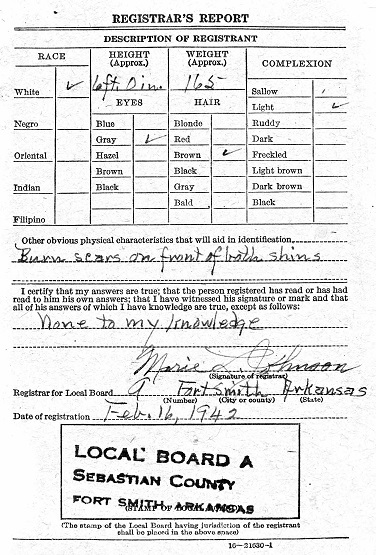 REGISTRAR'S REPORT
DESCRIPTION OF REGISTRANT
RACE HEIGHT (Approx.) WEIGHT (Approx.) COMPLEXION
6 ft. 0 in. 165
White ✓ Sallow
EYES HAIR Light ✓
Negro Blue Blonde Ruddy
Gray ✓ Red Dark
Oriental Hazel Brown ✓ Freckled
Brown Black Light brown
Indian Black Gray Dark brown
Bald Black
Filipino
Other obvious physical characteristics that will aid in identification
Burn scars on front of both shins
I certify that my answers are true; that the person registered has read or has had
read to him his own answers; that I have witnessed his signature or mark and that
all of his answers of which I have knowledge are true, except as follows:
None to my knowledge
Marie L. Johnson
(Signature of registrar)
Registrar for Local Board A Fort Smith Arkansas
(Number) (City or county) (State)
Date of registration Feb. 16, 1942
LOCAL BOARD A
SEBASTIAN COUNTY
FORT SMITH, ARKANSAS
(STAMP OF LOCAL BOARD)
(The stamp of the Local Board having jurisdiction of the registrant
shall be placed in the above space)
16—21630-1